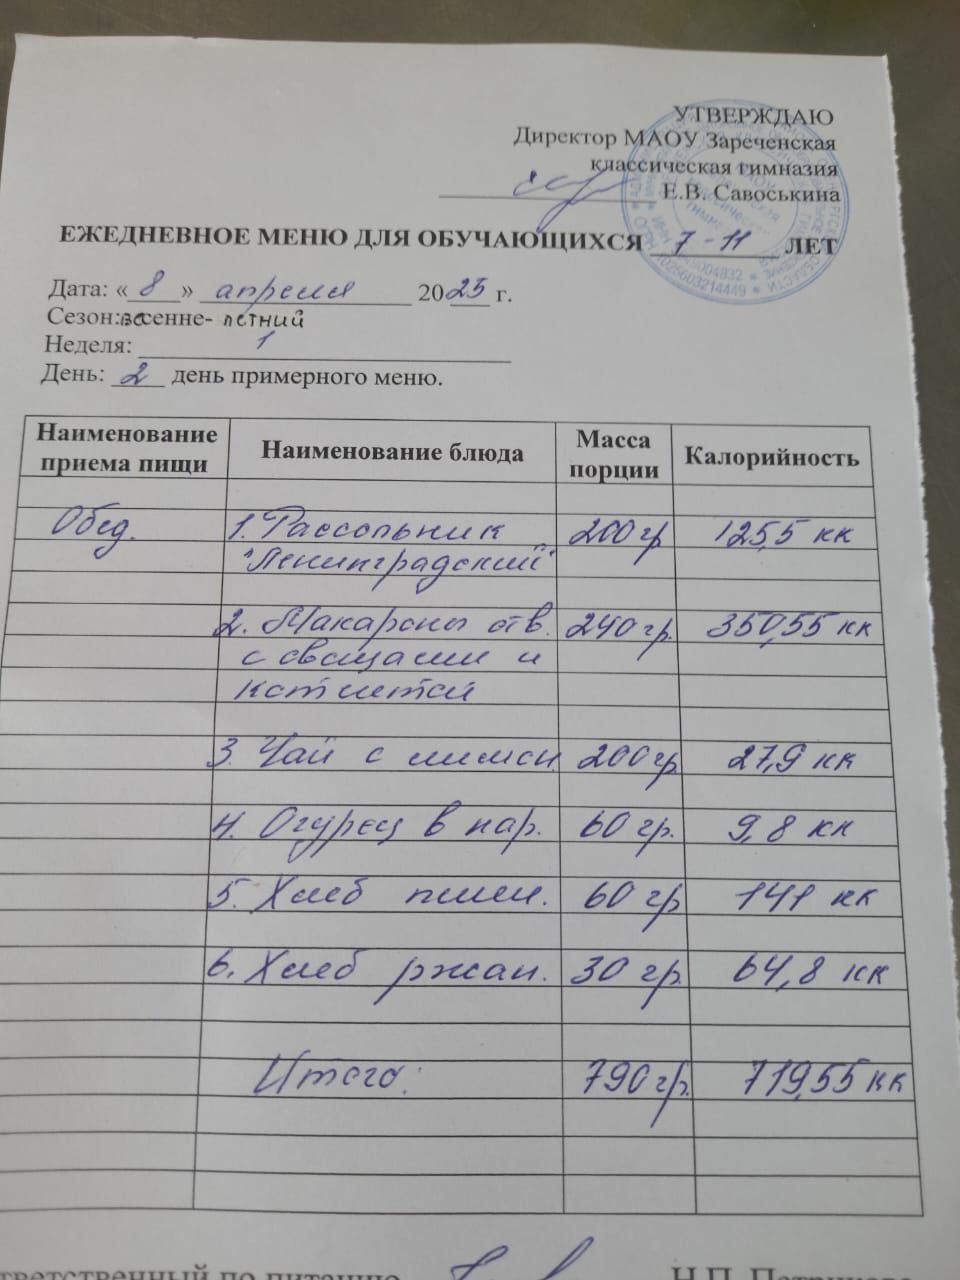 УТВЕРЖДАЮ
Директор МАОУ Зареченская
классическая гимназия
Е.В. Савоськина
ЕЖЕДНЕВНОЕ МЕНЮ ДЛЯ ОБУЧАЮЩИХСЯ 7-11 ЛЕТ
Дата: «8» апреля 2025 г.
Сезон: весенне-летний
Неделя: 1
День: 2 день примерного меню.
Наименование приема пищи Наименование блюда Масса порции Калорийность
Обед. 1. Рассольник 200 гр 125,5 кк
"Ленинградский"
2. Макароны отв. 240 гр. 350,55 кк
с овощами и
котлетой
3. Чай с лимон. 200 гр 27,9 кк
4. Огурец в нар. 60 гр. 9,8 кк
5. Хлеб пшен. 60 гр 141 кк
6. Хлеб ржан. 30 гр. 64,8 кк
Итого: 790 гр. 719,55 кк
тветственный по питанию Н.П.